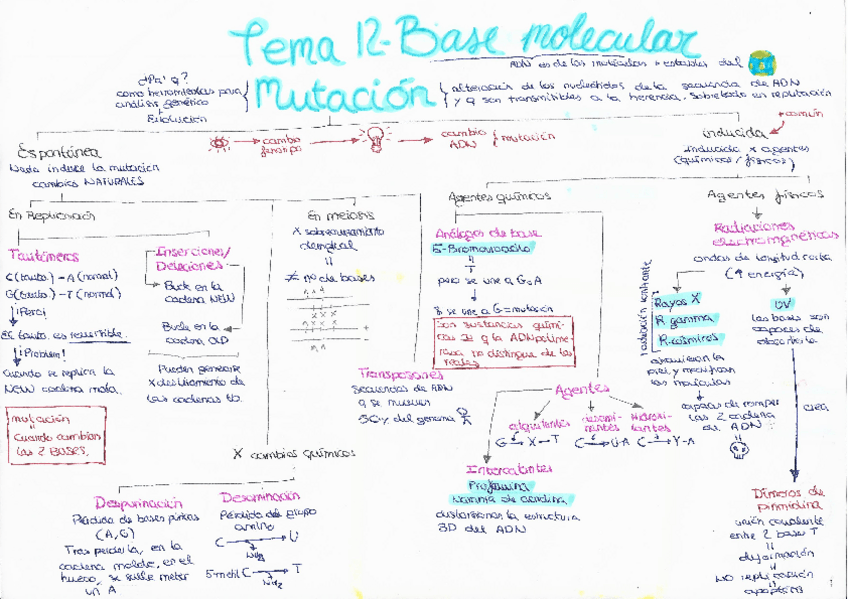 Tema 12-Base molecular
ADN es de las moléculas + estables del
Mutación
¿Pa' q?
como herramientas para
análisis genético
Evolución
alteración de los nucleótidos de la secuencia de ADN
y q son transmitibles a la herencia. Sobretodo en replicación
Espontánea
Nada induce la mutación
cambios NATURALES
cambio
fenotipo
cambio
ADN
mutación
inducida
+ común
inducida x agentes
(químicos/físicos)
En Replicación
Tautómeros
C(tauto) - A(normal)
G(tauto) - T(normal)
¡Pero!
El tauto. es reversible
¡Problem!
Cuando se replica la
NEW cadena mala.
mutación
"
cuando cambian
las 2 BASES.
Inserciones/
Deleciones
Bucle en la
cadena NEW
Bucle en la
cadena OLD
Pueden generarse
x deslizamiento de
las cadenas
En meiosis
x sobrecruzamiento
desigual
"
≠ no de bases
Transposones
Secuencias de ADN
q se mueven
50% del genoma
x cambios químicos
Despurinación
Pérdida de bases púricas
(A,G)
Tras perderla, en la
cadena molde, en el
hueco, se suele meter
un A
Desaminación
Pérdida del grupo
amino
C → U
NH2
5-metil C → T
NH2
Agentes químicos
Análogos de base
5-Bromouracilo
"
T
pero se une a G o A
si se une a G = mutación
Son sustancias quími-
cas q la ADN polime-
rasa no distingue de las
reales
Agentes
alquilantes
G → X - T
desami-
nantes
C → U-A
Hidroxi-
lantes
C → Y-A
Intercalantes
Proflavina
Naranja de acridina
distorsionan la estructura
3D del ADN
Agentes físicos
Radiaciones
electromagnéticas
ondas de longitud corta
(↑ energía)
radiación ionizante
Rayos X
R gamma
R.cósmicos
atraviesan la
piel y modifican
las moléculas
capaces de romper
las 2 cadenas
del ADN
UV
las bases son
capaces de
absorberla
crea
Dímeros de
pirimidina
unión covalente
entre 2 bases T
"
deformación
"
NO replicación
apoptosis